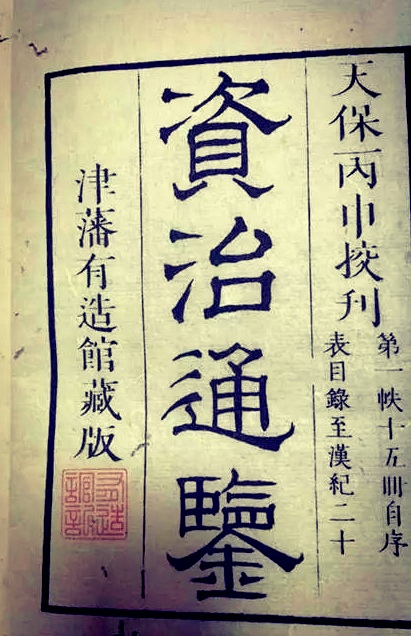 天保丙申挍刊
第一帙十五冊自序
表目錄至漢紀二十
資治通鑒
津藩有造館藏版